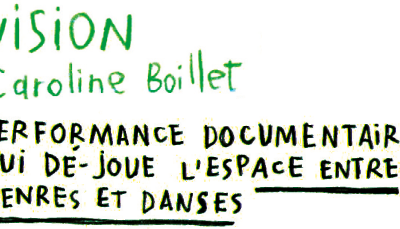 VISION
Caroline Boillet
ERFORMANCE DOCUMENTAIR
UI DÉ-JOUE L'ESPACE ENTRE
ENRES ET DANSES